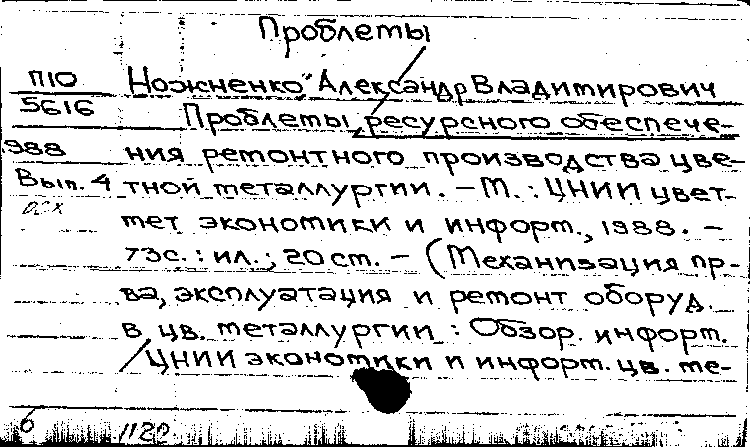 Проблемы
П10 Ножненко, Александр Владимирович
5616 Проблемы ресурсного обеспече-
988 ния ремонтного производства цве-
Вып. 4 тной металлургии. – М. : ЦНИИ цвет-
мет экономики и информ., 1988. –
73с. : ил. ; 20 см. – (Механизация пр-
ва, эксплуатация и ремонт оборуд.
в цв. металлургии : Обзор. информ.
/ ЦНИИ экономики и информ. цв. ме-
б 1120